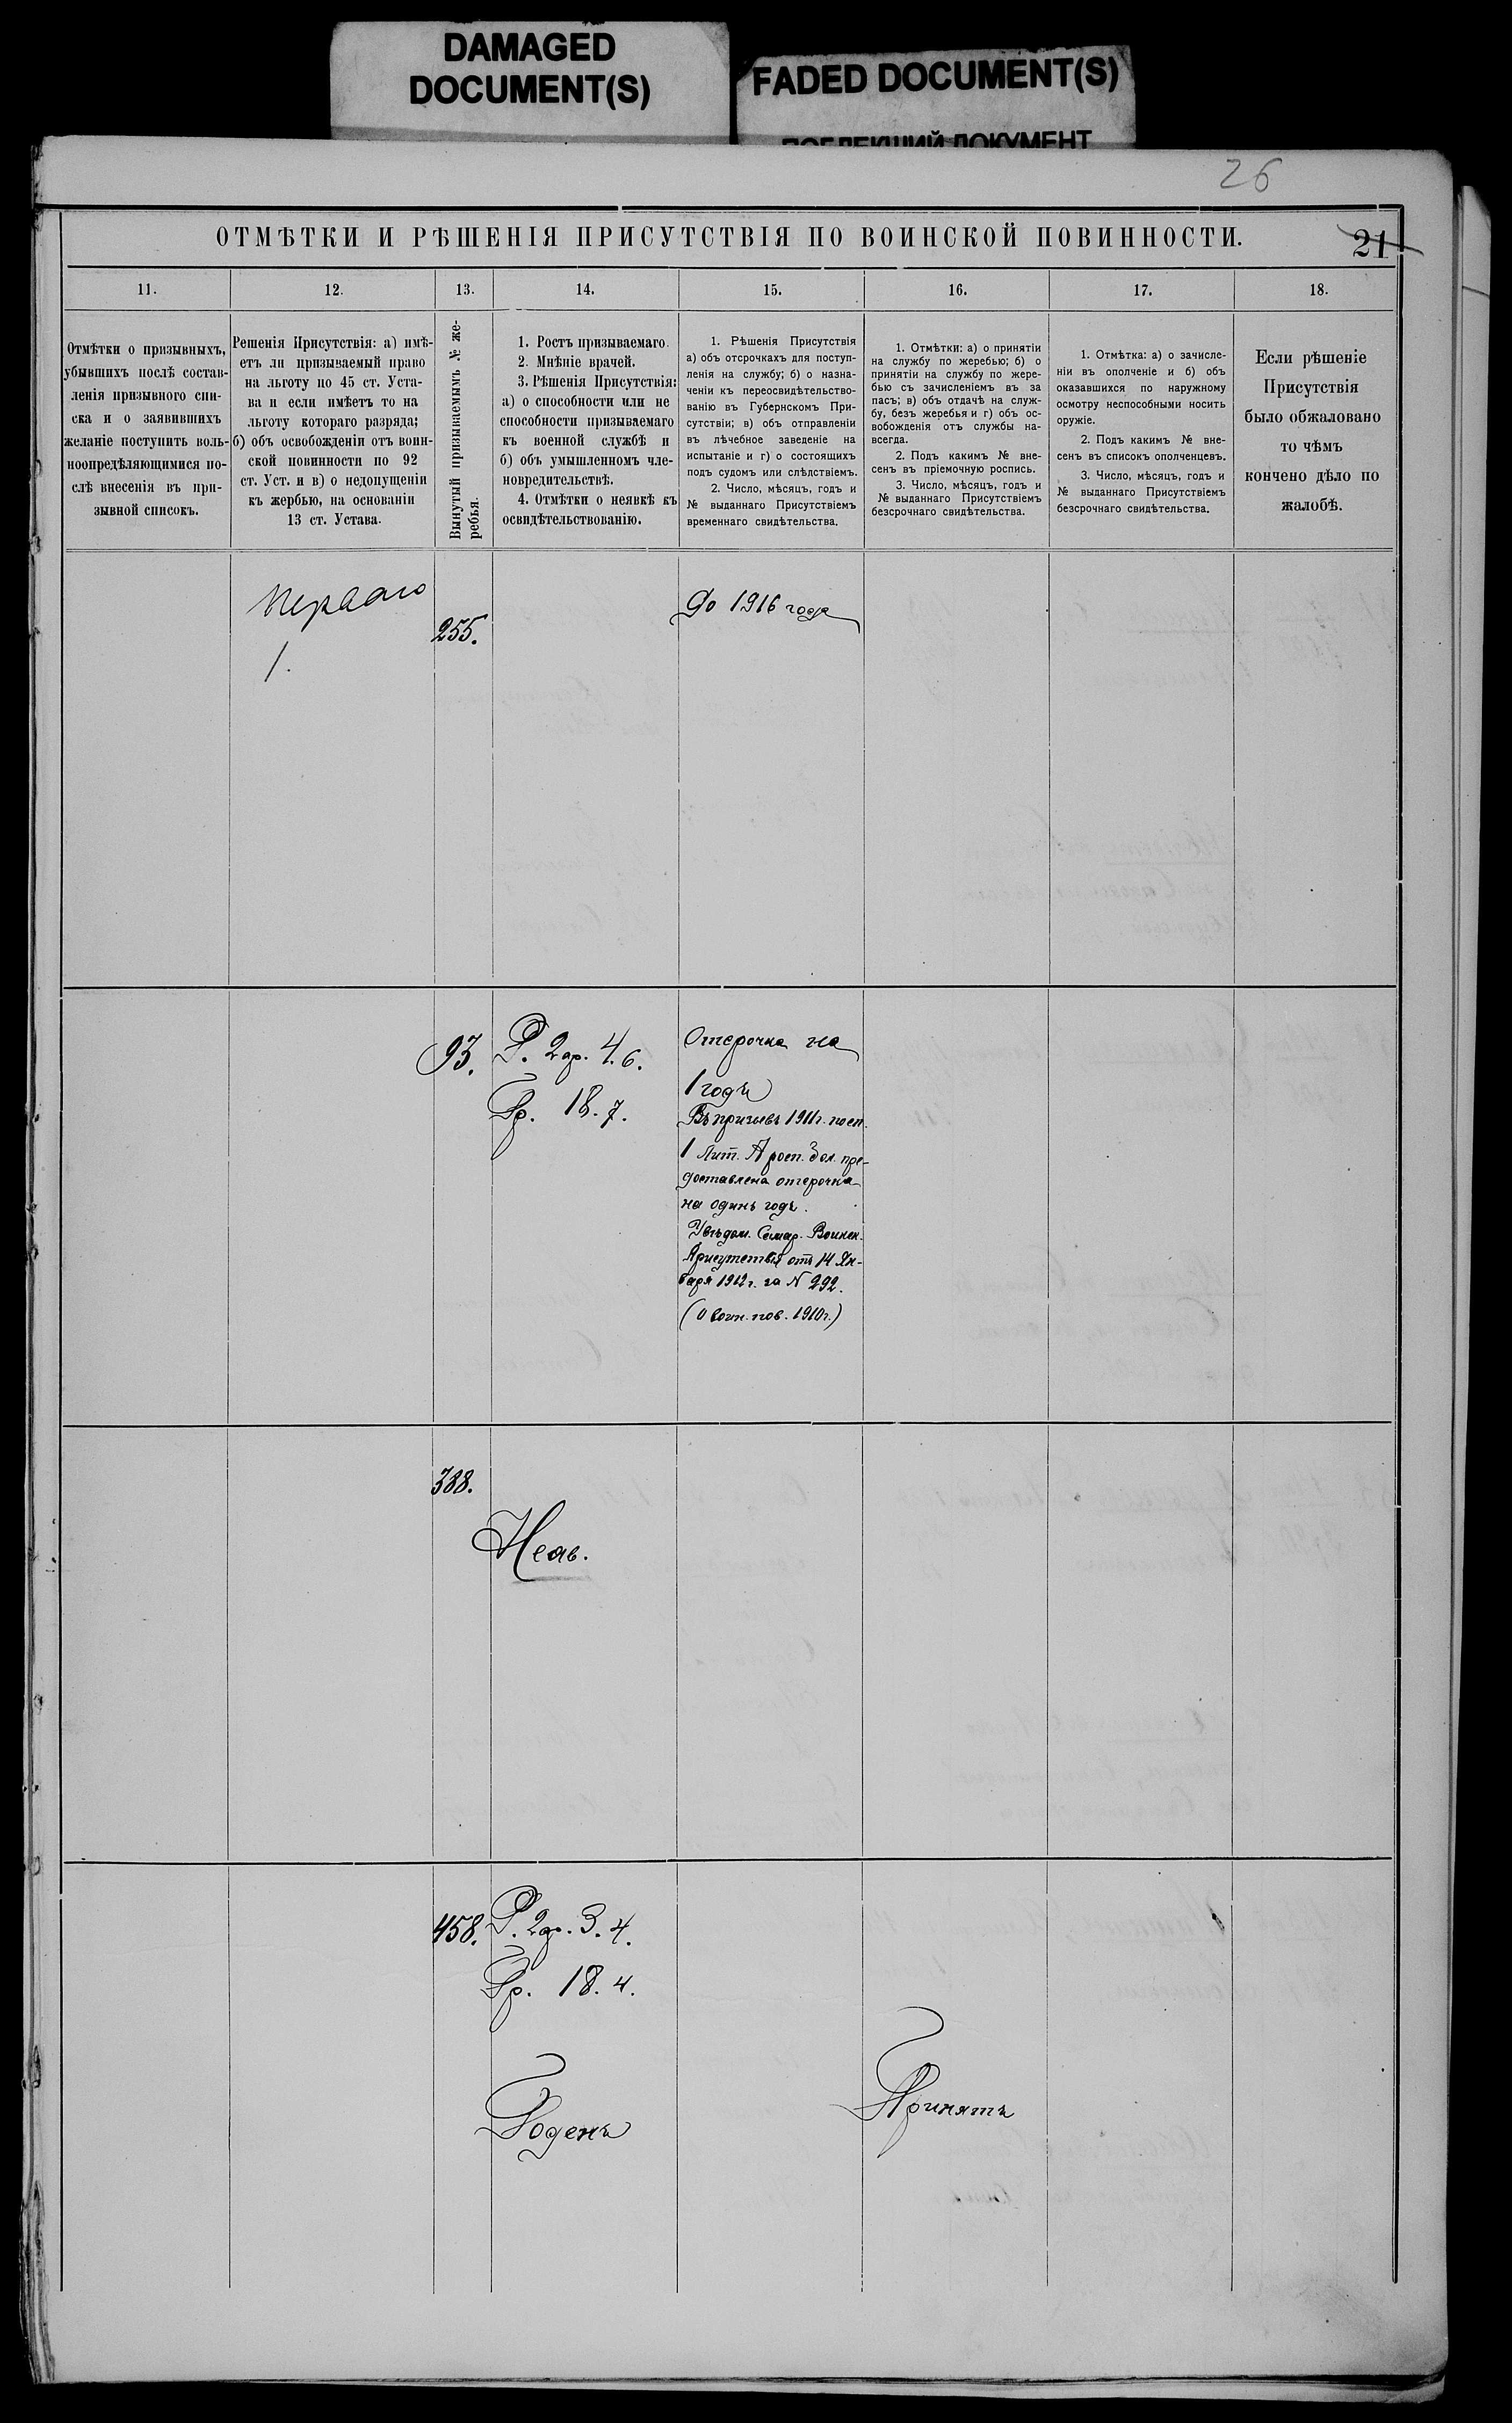 DAMAGED
DOCUMENT(S)
FADED DOCUMENT(S)
ПОБЛЕКШИЙ ДОКУМЕНТ
26
ОТМѢТКИ И РѢШЕНІЯ ПРИСУТСТВІЯ ПО ВОИНСКОЙ ПОВИННОСТИ.
21
11.
12.
13.
14.
15.
16.
17.
18.
Отмѣтки о призывныхъ,
убывшихъ послѣ состав-
ленія призывного спи-
ска и о заявившихъ
желаніе поступить воль-
ноопредѣляющимися по-
слѣ внесенія въ при-
зывной списокъ.
Решенія Присутствія: а) имѣ-
етъ ли призываемый право
на льготу по 45 ст. Уста-
ва и если имѣетъ то на
льготу котораго разряда;
б) объ освобожденіи отъ воин-
ской повинности по 92
ст. Уст. и в) о недопущеніи
къ жербью, на основаніи
13 ст. Устава.
Вынутый призываемымъ № же-
ребья.
1. Ростъ призываемаго.
2. Мнѣніе врачей.
3. Рѣшенія Присутствія:
а) о способности или не
способности призываемаго
къ военной службѣ и
б) объ умышленномъ чле-
новредительствѣ.
4. Отмѣтки о неявкѣ къ
освидѣтельствованію.
1. Рѣшенія Присутствія
а) объ отсрочкахъ для поступ-
ленія на службу; б) о назна-
ченіи къ переосвидѣтельство-
ванію въ Губернскомъ При-
сутствіи; в) объ отправленіи
въ лѣчебное заведеніе на
испытаніе и г) о состоящихъ
подъ судомъ или слѣдствіемъ.
2. Число, мѣсяцъ, годъ и
№ выданнаго Присутствіемъ
временнаго свидѣтельства.
1. Отмѣтки: а) о принятіи
на службу по жеребью; б) о
принятіи на службу по жере-
бью съ зачисленіемъ въ за
пасъ; в) объ отдачѣ на служ-
бу, безъ жеребья и г) объ ос-
вобожденія отъ службы на-
всегда.
2. Подъ какимъ № вне-
сенъ въ пріемочную роспись.
3. Число, мѣсяцъ, годъ и
№ выданнаго Присутствіемъ
безсрочнаго свидѣтельства.
1. Отмѣтка: а) о зачисле-
ніи въ ополченіе и б) объ
оказавшихся по наружному
осмотру неспособными носить
оружіе.
2. Подъ какимъ № вне-
сенъ въ списокъ ополченцевъ.
3. Число, мѣсяцъ, годъ и
№ выданнаго Присутствіемъ
безсрочнаго свидѣтельства.
Если рѣшеніе
Присутствія
было обжаловано
то чѣмъ
кончено дѣло по
жалобѣ.
перваго
1.
255.
До 1916 года
93.
Р. 2 ар. 4. 6.
Гр. 18. 7.
Отсрочка на
1 годъ
Въ призывъ 1911 г. по сп.
1 Лит. А росп. Зол. пре-
доставлена отсрочка
на одинъ годъ.
Увѣдом. Самар. Воинск.
Присутствія отъ 14 Ян-
варя 1912 г. за N 292.
(О воин. пов. 1910 г.)
388.
Неяв.
458.
Р. 2 ар. 3. 4.
Гр. 18. 4.
Годенъ
Принятъ